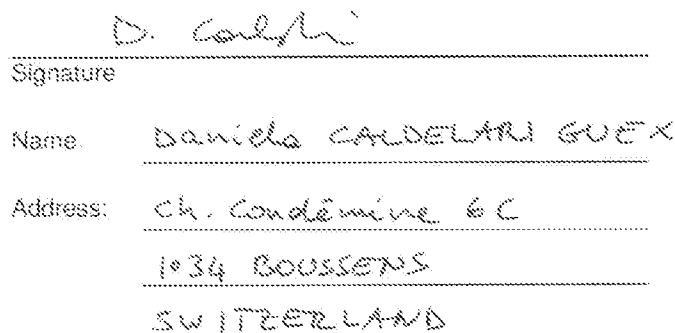 D. Caldelari
Signature
Name: Daniela CALDELARI GUEX
Address: Ch. Condémine 6C
1034 BOUSSENS
SWITZERLAND